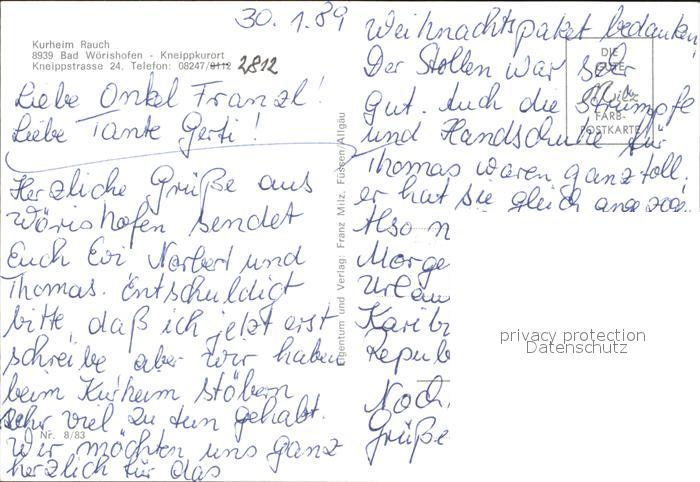 30. 1. 89
Kurheim Rauch
8939 Bad Wörishofen - Kneippkurort
Kneippstrasse 24. Telefon: 08247/8112 2812
Liebe Onkel Franzl!
Liebe Tante Gerti!
Herzliche Grüße aus
Wörishofen sendet
Euch Evi Norbert und
Thomas. Entschuldigt
bitte, daß ich jetzt erst
schreibe aber wir haben
beim Kurheim stöbern
sehr viel zu tun gehabt.
Nr. 8/83
Wir möchten uns ganz
herzlich für das
Eigentum und Verlag: Franz Milz, Füssen/Allgäu
Weihnachtspaket bedanken,
Der Stollen war sehr
gut. Auch die Strümpfe
und Handschuhe für
Thomas waren ganz toll.
er hat sie gleich angezog.
Also
Morge
Urlau
Karib
Repub
Noch
Grüße
DIE
GUTE
Milz
FARB-
POSTKARTE
privacy protection
Datenschutz